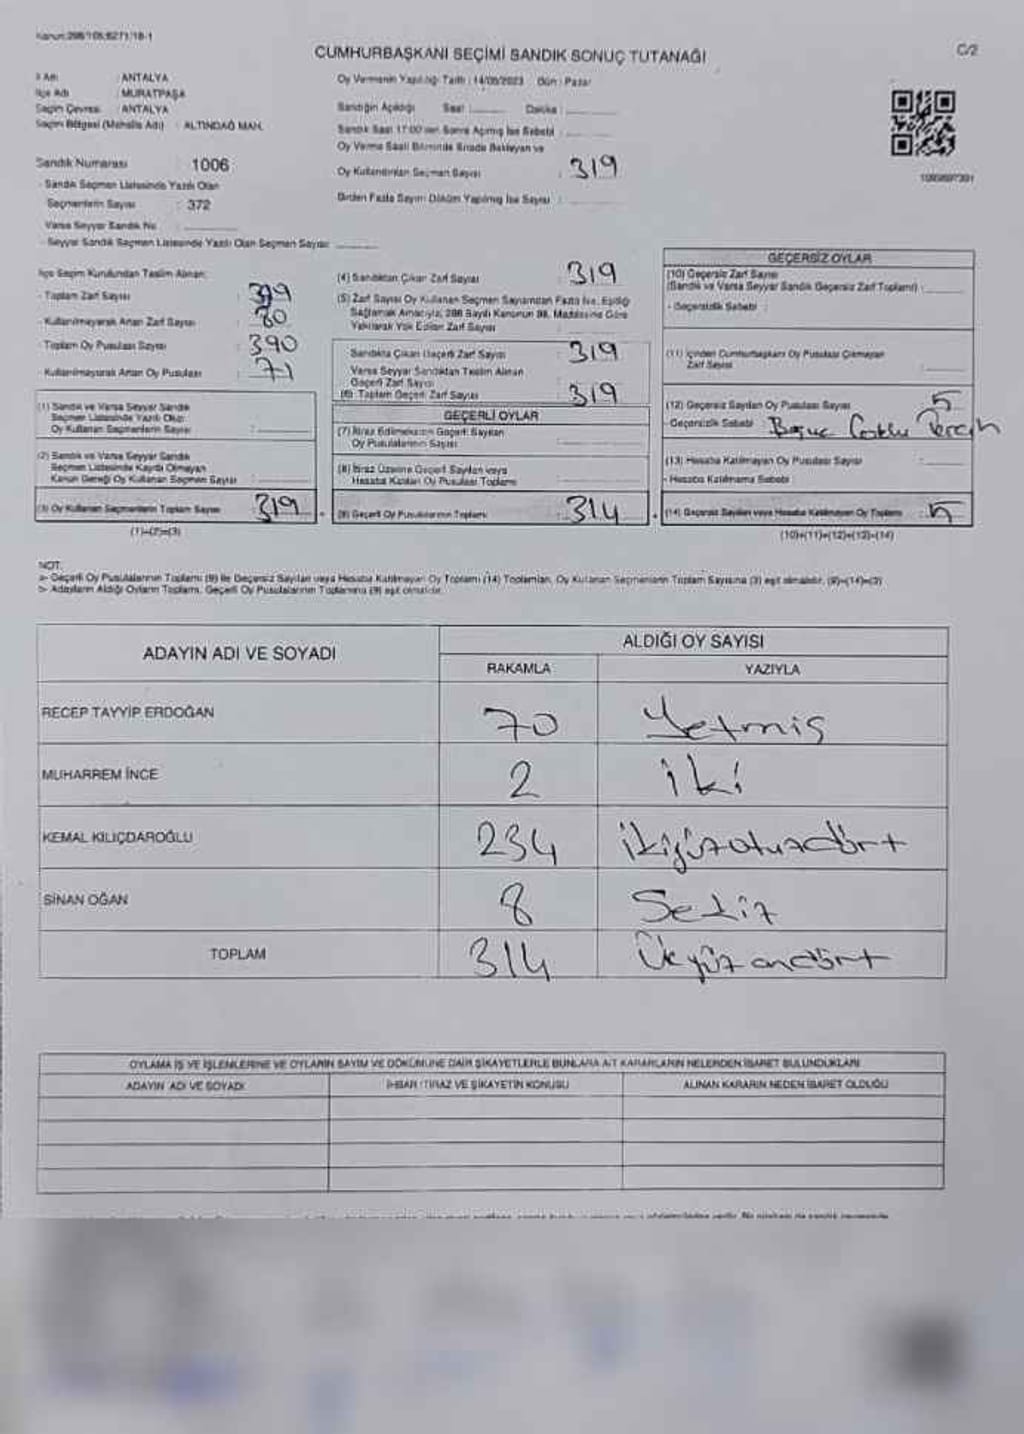 Kanun:298/105;6271/18-1
CUMHURBAŞKANI SEÇİMİ SANDIK SONUÇ TUTANAĞI
C/2
İl Adı : ANTALYA
İlçe Adı : MURATPAŞA
Seçim Çevresi : ANTALYA
Seçim Bölgesi (Mahalle Adı) : ALTINDAĞ MAH.
Sandık Numarası : 1006
- Sandık Seçmen Listesinde Yazılı Olan
Seçmenlerin Sayısı : 372
Varsa Seyyar Sandık No :
- Seyyar Sandık Seçmen Listesinde Yazılı Olan Seçmen Sayısı
Oy Vermenin Yapıldığı Tarih : 14/05/2023 Gün : Pazar
Sandığın Açıldığı Saat : Dakika :
Sandık Saat 17:00'den Sonra Açılmış İse Sebebi :
Oy Verme Saati Bitiminde Sırada Bekleyen ve
Oy Kullandırılan Seçmen Sayısı : 319
Birden Fazla Sayım Döküm Yapılmış İse Sayısı :
İlçe Seçim Kurulundan Teslim Alınan:
- Toplam Zarf Sayısı : 399
- Kullanılmayarak Artan Zarf Sayısı : 80
- Toplam Oy Pusulası Sayısı : 390
- Kullanılmayarak Artan Oy Pusulası : 71
(1) Sandık ve Varsa Seyyar Sandık
Seçmen Listesinde Yazılı Olup
Oy Kullanan Seçmenlerin Sayısı :
(2) Sandık ve Varsa Seyyar Sandık
Seçmen Listesinde Kaydı Olmayan
Kanun Gereği Oy Kullanan Seçmen Sayısı :
(3) Oy Kullanan Seçmenlerin Toplam Sayısı : 319
(1)+(2)=(3)
(4) Sandıktan Çıkan Zarf Sayısı : 319
(5) Zarf Sayısı Oy Kullanan Seçmen Sayısından Fazla İse, Eşitliği
Sağlamak Amacıyla, 298 Sayılı Kanunun 98. Maddesine Göre
Yakılarak Yok Edilen Zarf Sayısı :
Sandıkta Çıkan Geçerli Zarf Sayısı : 319
Varsa Seyyar Sandıktan Teslim Alınan
Geçerli Zarf Sayısı
(6) Toplam Geçerli Zarf Sayısı : 319
GEÇERLİ OYLAR
(7) İtiraz Edilmeksizin Geçerli Sayılan
Oy Pusulalarının Sayısı :
(8) İtiraz Üzerine Geçerli Sayılan veya
Hesaba Katılan Oy Pusulası Toplamı :
(9) Geçerli Oy Pusulalarının Toplamı : 314
GEÇERSİZ OYLAR
(10) Geçersiz Zarf Sayısı
(Sandık ve Varsa Seyyar Sandık Geçersiz Zarf Toplamı) :
- Geçersizlik Sebebi :
(11) İçinden Cumhurbaşkanı Oy Pusulası Çıkmayan
Zarf Sayısı :
(12) Geçersiz Sayılan Oy Pusulası Sayısı : 5
- Geçersizlik Sebebi : Tercih
(13) Hesaba Katılmayan Oy Pusulası Sayısı :
- Hesaba Katılmama Sebebi :
(14) Geçersiz Sayılan veya Hesaba Katılmayan Oy Toplamı : 5
(10)+(11)+(12)+(13)=(14)
NOT:
a- Geçerli Oy Pusulalarının Toplamı (9) ile Geçersiz Sayılan veya Hesaba Katılmayan Oy Toplamı (14) Toplamları, Oy Kullanan Seçmenlerin Toplam Sayısına (3) eşit olmalıdır. (9)+(14)=(3)
b- Adayların Aldığı Oyların Toplamı, Geçerli Oy Pusulalarının Toplamına (9) eşit olmalıdır.
ADAYIN ADI VE SOYADI
ALDIĞI OY SAYISI
RAKAMLA YAZIYLA
RECEP TAYYİP ERDOĞAN 70 Yetmiş
MUHARREM İNCE 2 iki
KEMAL KILIÇDAROĞLU 234 ikiyüzotuzdört
SİNAN OĞAN 8 Sekiz
TOPLAM 314 Üçyüzondört
OYLAMA İŞ VE İŞLEMLERİNE VE OYLARIN SAYIM VE DÖKÜMÜNE DAİR ŞİKAYETLERLE BUNLARA AİT KARARLARIN NELERDEN İBARET BULUNDUKLARI
ADAYIN ADI VE SOYADI İHBAR İTİRAZ VE ŞİKAYETİN KONUSU ALINAN KARARIN NEDEN İBARET OLDUĞU